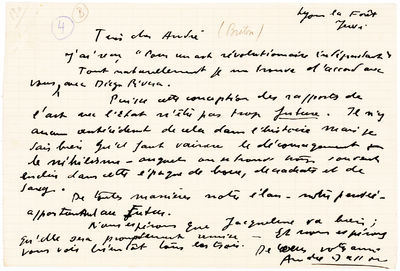 4
8
Lyons la Forêt
Jeudi
Très cher André (Breton)
J'ai reçu "Pour un art révolutionnaire indépendant"
Tout naturellement je me trouve d'accord avec
vous, avec Diego Rivera.
Puisse cette conception des rapports de
l'art avec l'État n'être pas trop future. Il n'y
aucun antécédent de cela dans l'histoire mais je
sais bien qu'il faut vaincre le découragement ou
le nihilisme - auquel on est souvent
enclin dans cette époque de boue, de crachats et de
sang.
De toutes manières notre élan - notre pensée
appartiennent au futur.
Nous espérons que Jacqueline va bien ;
qu'elle sera promptement remise - Et nous espérons
vous voir bientôt tous les trois. De tout votre ami
André Masson